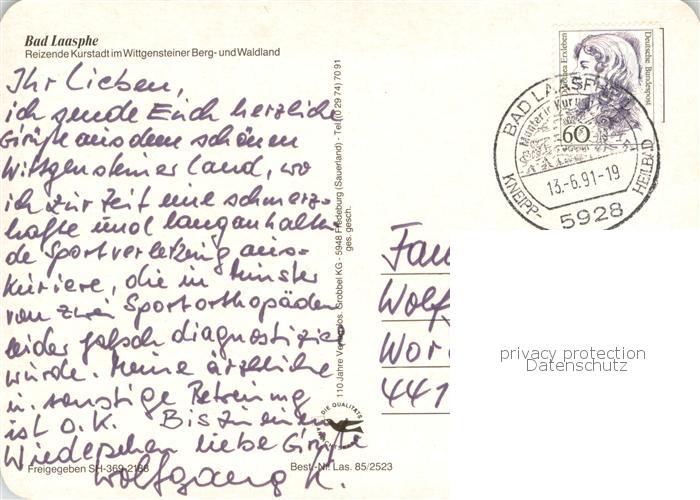 Bad Laasphe
Reizende Kurstadt im Wittgensteiner Berg- und Waldland
Ihr Lieben,
ich sende Euch herzliche
Grüße aus dem schönen
Wittgensteiner Land, wo
ich zur Zeit eine schmerz-
hafte und langanhalten
de Sportverletzung aus-
kuriere, die in Münster
von zwei Sportorthopäden
leider falsch diagnostiziert
wurde. Meine ärztliche
u. sonstige Betreuung
ist O.K. Bis zu einem
Wiedersehen liebe Grüße
Wolfgang K.
Freigegeben SH-369-2188
Best.-Nr. Las. 85/2523
110 Jahre Verlag Jos. Grobbel KG - 5948 Fredeburg (Sauerland) - Tel. (0 29 74) 70 91
ges. gesch.
DIE QUALITÄTS
Deutsche Bundespost
Erxleben
60
BAD LAASPHE
Munter in Kur und
13.-6.91-19
KNEIPP- HEILBAD
5928
Fam
Wolf
Wor
441
privacy protection
Datenschutz